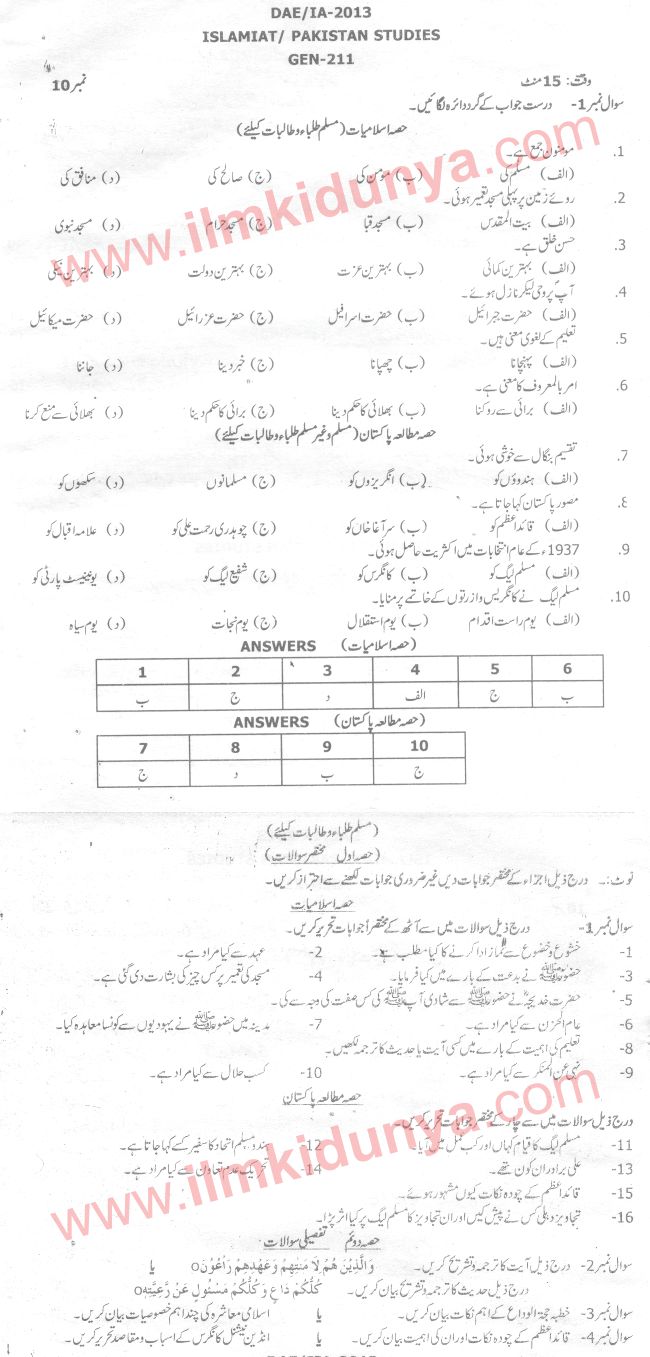 DAE/IA-2013
ISLAMIAT/ PAKISTAN STUDIES
GEN-211
وقت: 15 منٹ نمبر 10
سوال نمبر 1- درست جواب کے گرد دائرہ لگائیں۔
حصہ اسلامیات (مسلم طلباء و طالبات کیلئے)
1. مومنون جمع ہے۔
(الف) مسلم کی (ب) مومن کی (ج) صالح کی (د) منافق کی
2. روئے زمین پر پہلی مسجد تعمیر ہوئی۔
(الف) بیت المقدس (ب) مسجد قبا (ج) مسجد حرام (د) مسجد نبوی
3. حسن خلق ہے۔
(الف) بہترین کمائی (ب) بہترین عزت (ج) بہترین دولت (د) بہترین نیکی
4. آپؐ پر وحی لیکر نازل ہوئے۔
(الف) حضرت جبرائیل (ب) حضرت اسرافیل (ج) حضرت عزرائیل (د) حضرت میکائیل
5. تعلیم کے لغوی معنی ہیں۔
(الف) پہنچانا (ب) چھپانا (ج) خبر دینا (د) جاننا
6. امر بالمعروف کا معنی ہے۔
(الف) برائی سے روکنا (ب) بھلائی کا حکم دینا (ج) برائی کا حکم دینا (د) بھلائی سے منع کرنا
حصہ مطالعہ پاکستان (مسلم و غیر مسلم طلباء و طالبات کیلئے)
7. تقسیم بنگال سے خوشی ہوئی۔
(الف) ہندوؤں کو (ب) انگریزوں کو (ج) مسلمانوں (د) سکھوں کو
8. مصور پاکستان کہا جاتا ہے۔
(الف) قائداعظم کو (ب) سر آغا خاں کو (ج) چوہدری رحمت علی کو (د) علامہ اقبال کو
9. 1937ء کے عام انتخابات میں اکثریت حاصل ہوئی۔
(الف) مسلم لیگ کو (ب) کانگرس کو (ج) شفیع لیگ کو (د) یونینسٹ پارٹی کو
10. مسلم لیگ نے کانگریس وازرتوں کے خاتمے پر منایا۔
(الف) یوم راست اقدام (ب) یوم استقلال (ج) یوم نجات (د) یوم سیاہ
ANSWERS (حصہ اسلامیات)
1 2 3 4 5 6
ب ج د الف ج ب
ANSWERS (حصہ مطالعہ پاکستان)
7 8 9 10
ج د ب ج
(مسلم طلباء و طالبات کیلئے)
(حصہ اول مختصر سوالات)
نوٹ:۔ درج ذیل اجزاء کے مختصر جوابات دیں غیر ضروری جوابات لکھنے سے احتراز کریں۔
حصہ اسلامیات
سوال نمبر 1- درج ذیل سوالات میں سے آٹھ کے مختصر اً جوابات تحریر کریں۔
1- خشوع و خضوع سے نماز ادا کرنے کا کیا مطلب ہے۔ 2- عہد سے کیا مراد ہے۔
3- حضورﷺ نے بدعت کے بارے میں کیا فرمایا۔ 4- مسجد کی تعمیر پر کس چیز کی بشارت دی گئی ہے۔
5- حضرت خدیجہؓ نے حضورﷺ سے شادی آپﷺ کی کس صفت کی وجہ سے کی۔
6- عام الحزن سے کیا مراد ہے۔ 7- مدینہ میں حضورﷺ نے یہودیوں سے کونسا معاہدہ کیا۔
8- تعلیم کی اہمیت کے بارے میں کسی آیت یا حدیث کا ترجمہ لکھیں۔
9- نہی عن المنکر سے کیا مراد ہے۔ 10- کسب حلال سے کیا مراد ہے۔
حصہ مطالعہ پاکستان
درج ذیل سوالات میں سے چار کے مختصر جوابات تحریر کریں۔
11- مسلم لیگ کا قیام کہاں اور کب عمل میں آیا۔ 12- ہندو مسلم اتحاد کا سفیر کسے کہا جاتا ہے۔
13- علی برادران کون تھے۔ 14- تحریک عدم تعاون سے کیا مراد ہے۔
15- قائداعظم کے چودہ نکات کیوں مشہور ہوئے۔
16- تجاویز دہلی کس نے پیش کیں اور ان تجاویز کا مسلم لیگ پر کیا اثر پڑا۔
حصہ دوئم تفصیلی سوالات
سوال نمبر 2- درج ذیل آیت کا ترجمہ و تشریح کریں۔ وَالَّذِيْنَ هُمْ لِاَمٰنٰتِهِمْ وَعَهْدِهِمْ رَاعُوْنَo یا
درج ذیل حدیث کا ترجمہ و تشریح بیان کریں۔ كُلُّكُمْ رَاعٍ وَّكُلُّكُمْ مَسْئُولٌ عَنْ رَّعِيَّتِهٖo
سوال نمبر 3- خطبہ حجۃ الوداع کے اہم نکات بیان کریں۔ یا اسلامی معاشرہ کی چند اہم خصوصیات بیان کریں۔
سوال نمبر 4- قائداعظم کے چودہ نکات اور ان کی اہمیت بیان کریں۔ یا انڈین نیشنل کانگرس کے اسباب و مقاصد تحریر کریں۔
www.ilmkidunya.com
www.ilmkidunya.com